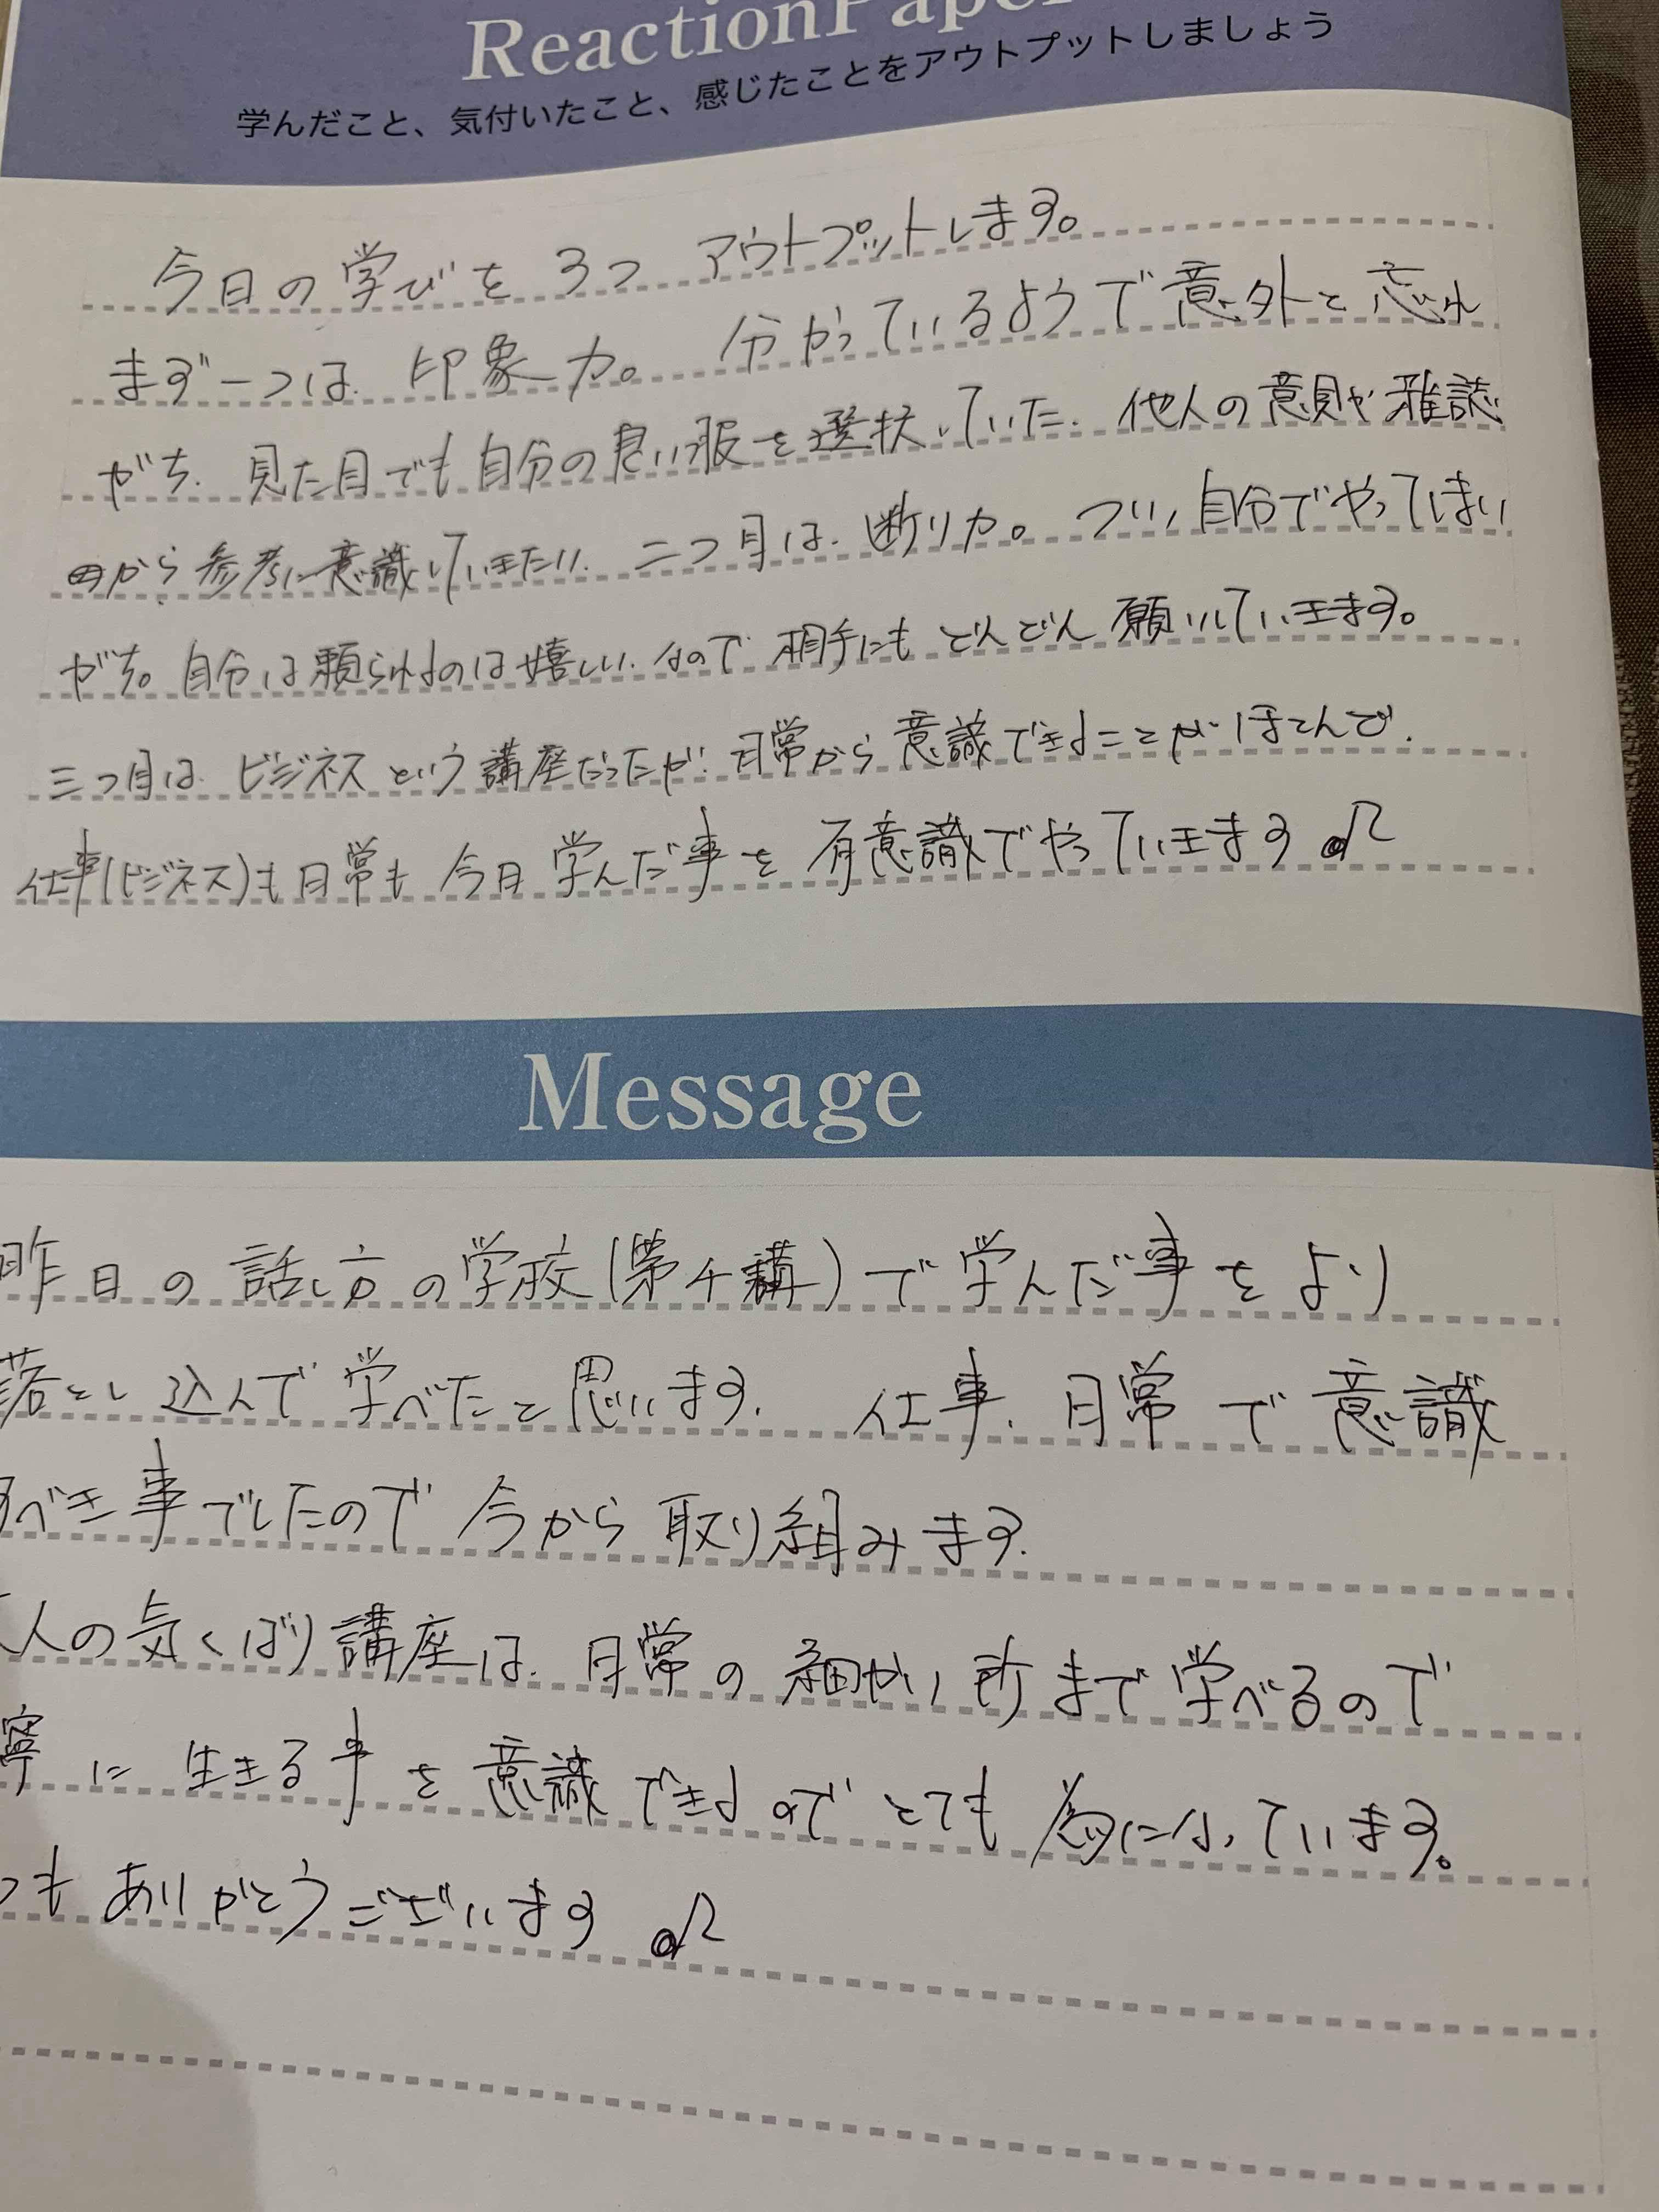 ReactionPaper
学んだこと、気付いたこと、感じたことをアウトプットしましょう
今日の学びを3つ アウトプットします。
まず一つは、印象力。分かっているようで意外と忘れ
がち、見た目でも自分の良い服を選択していた、他人の意見や雑誌
から参考に意識していきたい、二つ目は、断り力。つい、自分でやってしまい
がち。自分は頼られるのは嬉しい、なので相手にもどんどん願いしていきます。
三つ目は、ビジネスという講座だったが、日常から意識できることがほとんどで、
仕事(ビジネス)も日常も今日学んだ事を有意識でやっていきます
Message
昨日の話し方の学校(第4講)で学んだ事をより
落とし込んで学べたと思います。仕事、日常で意識
るべき事でしたので今から取り組みます。
人の気くばり講座は、日常の細かい所まで学べるので
寧に生きる事を意識できるのでとても為になっています。
つもありがとうございます